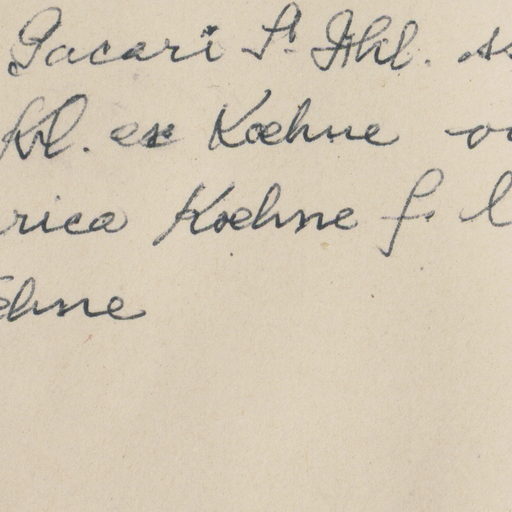 Pacari St. Hhl. ss
Hhl. ex Koehne v
rica Koehne f. l
ehne